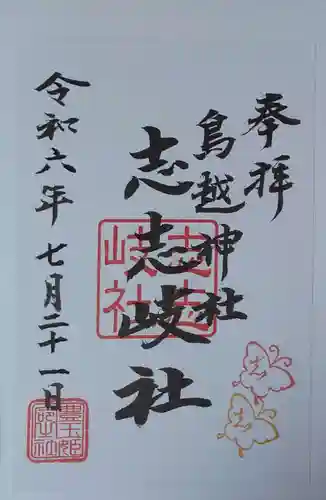 奉拝
鳥越神社
志志岐社
令和六年七月二十一日
志志岐社
志
志